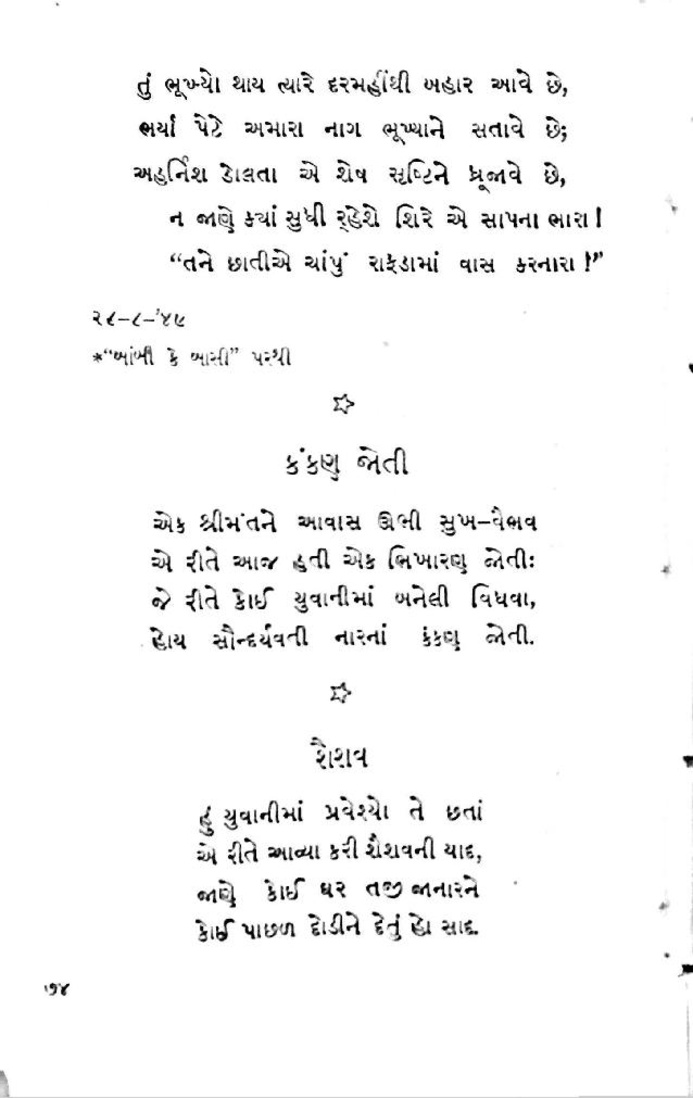 તું ભૂખ્યો થાય ત્યારે દરમહીંથી બહાર આવે છે,
ભર્યા પેટે અમારા નાગ ભૂખ્યાને સતાવે છે;
અહર્નિશ ડોલતા એ શેષ સૃષ્ટિને ધ્રૂજાવે છે,
ન જાણે ક્યાં સુધી ર્‌હેશે શિરે એ સાપના ભારા !
“તને છાતીએ ચાંપું રાફડામાં વાસ કરનારા !”
૨૮-૮-’૪૯
*“આંબી કે બાસી” પરથી
કંકણ જોતી
એક શ્રીમંતને આવાસ ઊભી સુખ-વૈભવ
એ રીતે આજ હતી એક ભિખારણ જોતીઃ
જે રીતે કોઈ યુવાનીમાં બનેલી વિધવા,
હોય સૌન્દર્યવતી નારનાં કંકણ જોતી.
શૈશવ
હું યુવાનીમાં પ્રવેશ્યો તે છતાં
એ રીતે આવ્યા કરી શૈશવની યાદ,
જાણે કોઈ ઘર તજી જાનારને
કોઈ પાછળ દોડીને દેતું હો સાદ.
૭૪